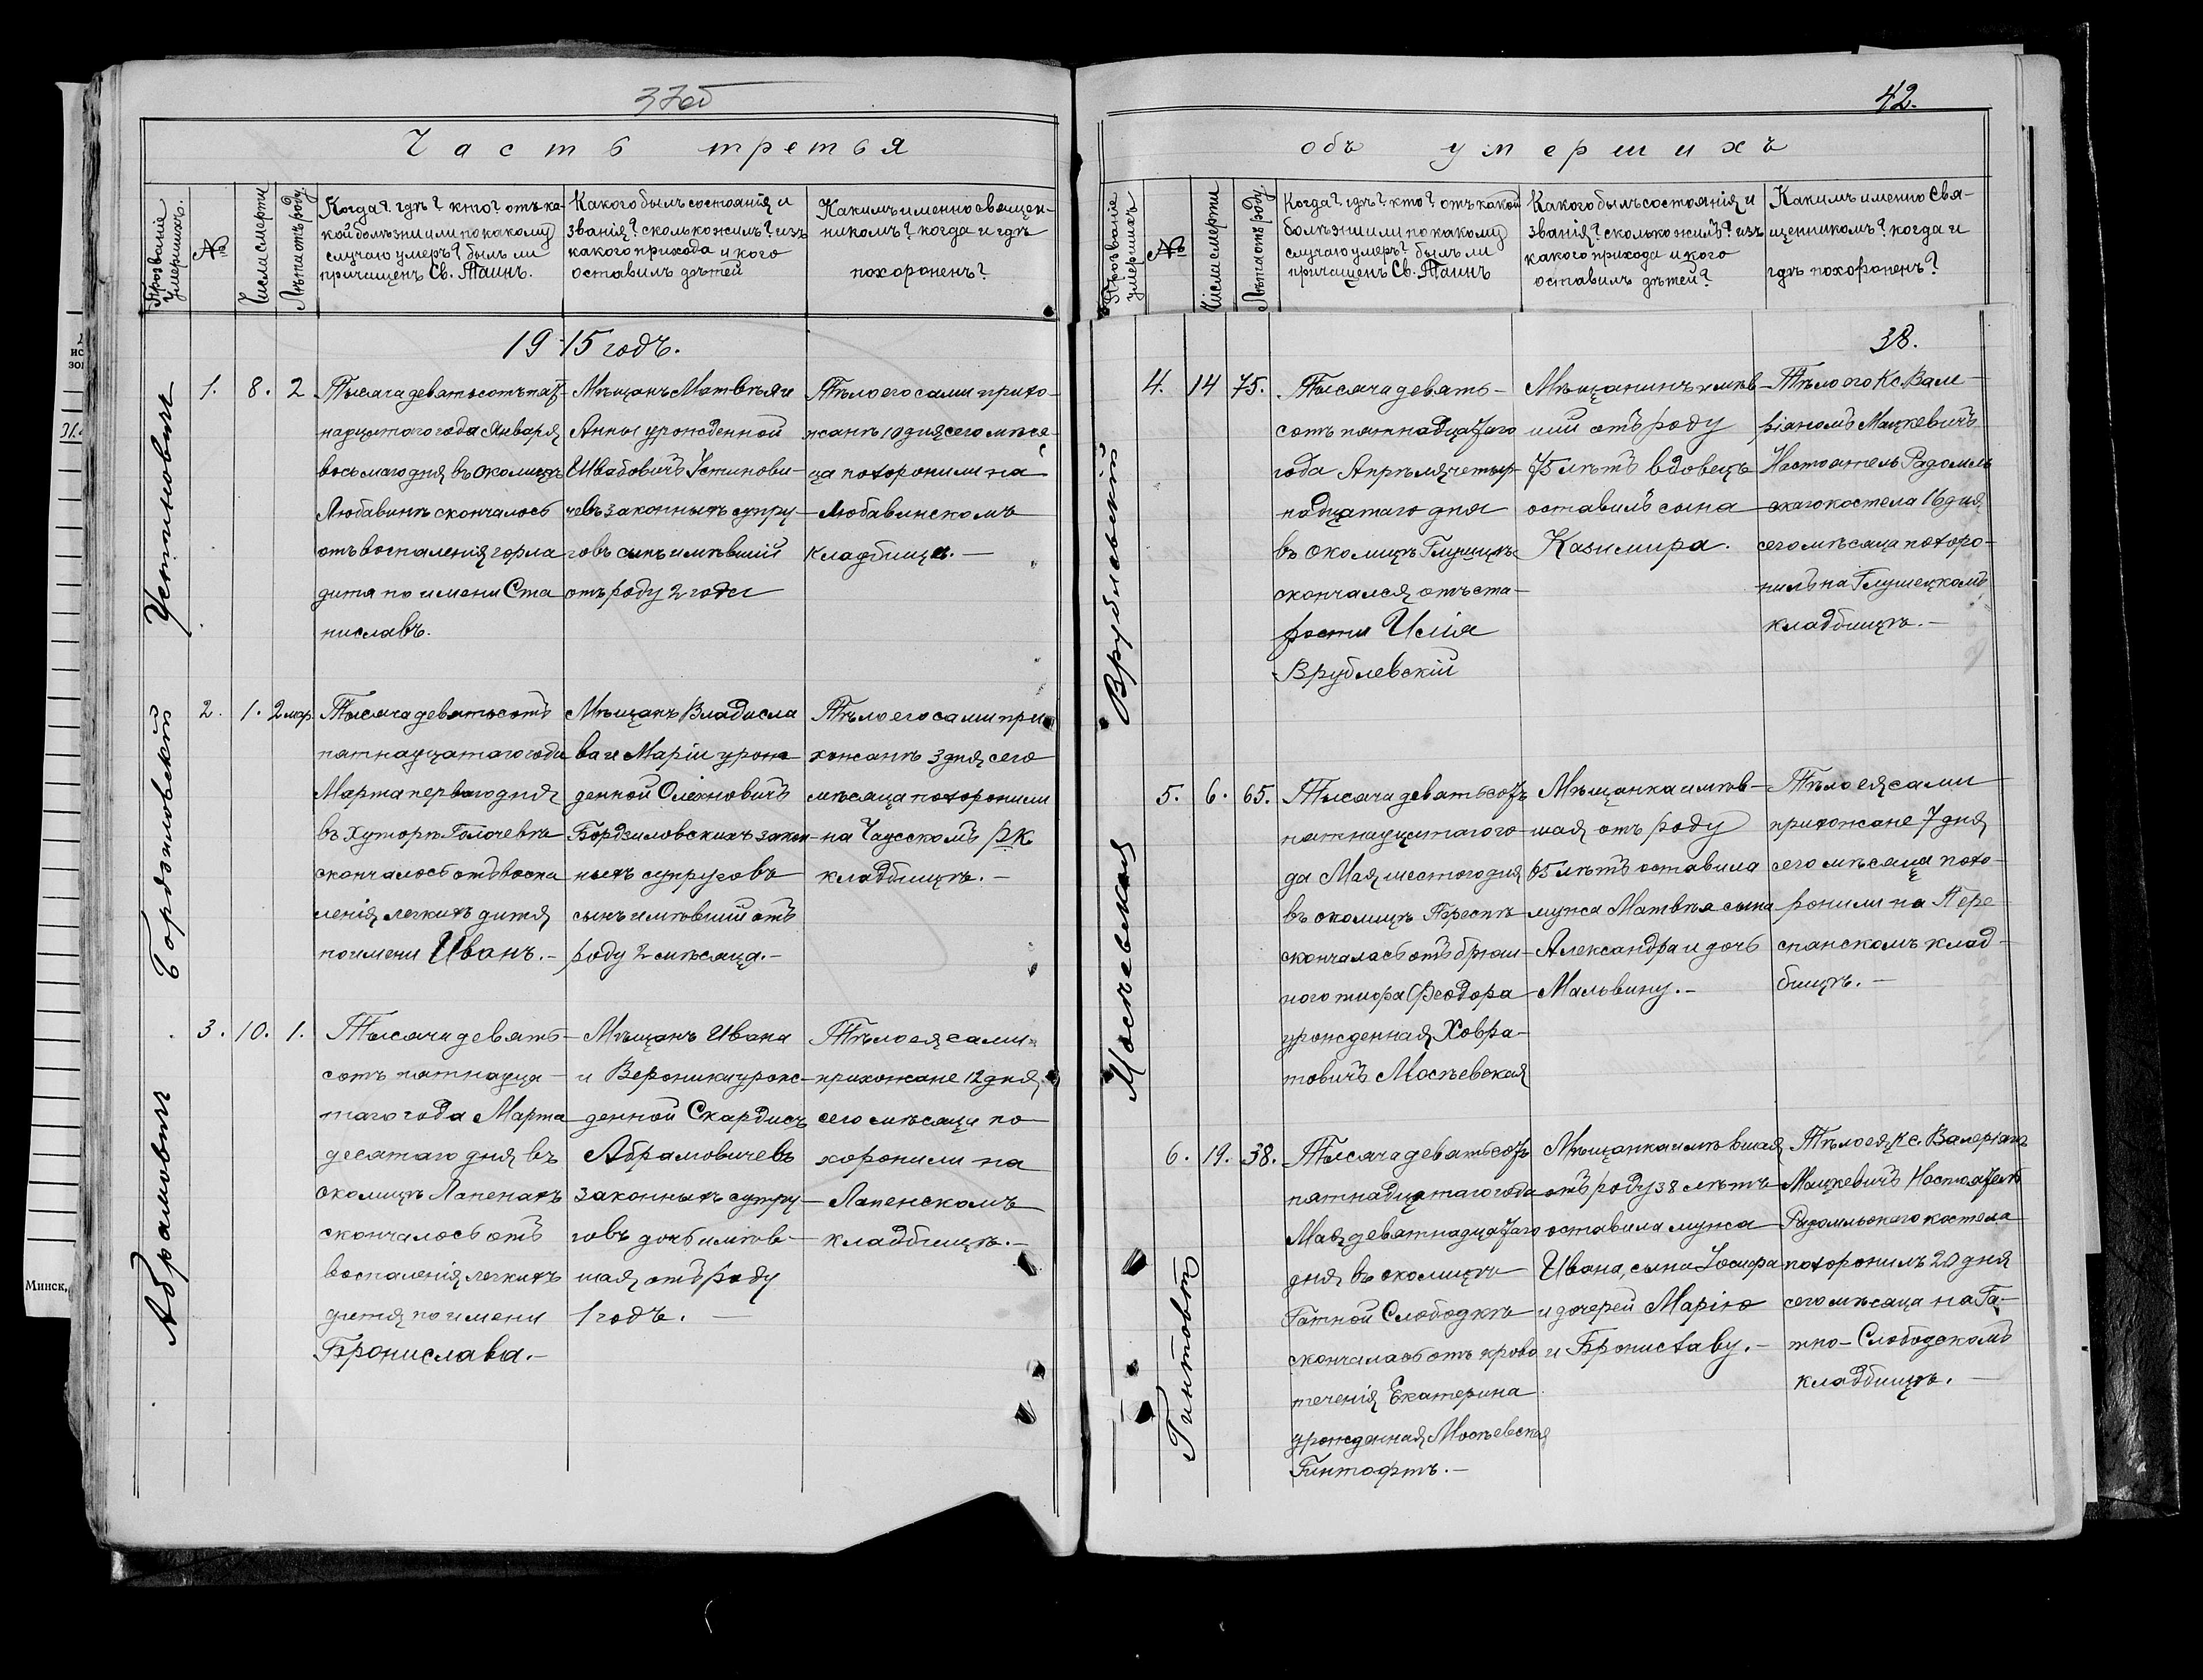 37об
Часть третья
Прозваніе умершихъ.
№
Числа смерти
Лѣта отъ роду
Когда? гдѣ? кто? отъ ка-
кой болѣзни или по какому
случаю умеръ? былъ ли
причащенъ Св. Таинъ.
Какого былъ состоянія и
званія? сколько жилъ? изъ
какого прихода и кого
оставилъ дѣтей
Какимъ именно священ-
никомъ? когда и гдѣ
похороненъ?
1915 годъ.
Устиновичъ
1.
8.
2
Тысяча девятьсотъ пят-
надцатаго года Января
восьмаго дня въ околицѣ
Любавинѣ скончалось
отъ воспаленія горла
дитя по имени Ста
ниславъ.
Мѣщанъ Матвѣя и
Анны урожденной
Швабовичъ Устинови-
чевъ законныхъ супру-
говъ сынъ имѣвшій
отъ роду 2 года
Тѣло его сами прихо-
жанѣ 10 дня сего мѣся-
ца похоронили на
Любавинскомъ
кладбище.—
Бордзиловскій
2.
1.
2 мѣс.
Тысяча девятьсотъ
пятнадцатаго года
Марта перваго дня
въ Хуторѣ Голочевка
скончалось отъ воспа
ленія легкихъ дитя
по имени Иванъ.—
Мѣщанъ Владисла
ва и Маріи урож
денной Олехновичъ
Бордзиловскихъ закон
ныхъ супруговъ
сынъ имѣвшій отъ
роду 2 мѣсяца.—
Тѣло его сами при
хожанѣ 3 дня сего
мѣсяца похоронили
на Чаусскомъ Р.К.
кладбищѣ.—
Абрамовичъ
3.
10.
1.
Тысяча девять-
сотъ пятнадца-
таго года Марта
десятаго дня въ
околицѣ Лапенахъ
скончалось отъ
воспаленія легкихъ
дитя по имени
Бронислава.—
Мѣщанъ Ивана
и Вероники урож-
денной Скардисъ
Абрамовичевъ
законныхъ супру-
говъ дочь имѣв-
шая отъ роду
1 годъ.—
Тѣло ея сами
прихожане 12 дня
сего мѣсяца по
хоронили на
Лапенскомъ
кладбищѣ.—
42.
объ умершихъ
Прозваніе умершихъ
№
Числа смерти
Лѣта отъ роду
Когда? гдѣ? кто? отъ какой
болѣзни или по какому
случаю умеръ? былъ ли
причащенъ Св. Таинъ
Какого былъ состоянія и
званія? сколько жилъ? изъ
какого прихода и кого
оставилъ дѣтей?
Какимъ именно Свя-
щенникомъ? когда и
гдѣ похороненъ?
38.
Врублевскій
4.
14
75.
Тысяча девять-
сотъ пятнадцатаго
года Апрѣля четыр-
надцатаго дня
въ околицѣ Глушцѣ
скончался отъ ста-
рости Илія
Врублевскій
Мѣщанинъ имѣв-
шій отъ роду
75 лѣтъ вдовецъ
оставилъ сына
Казимира.
Тѣло его Кс. Вале-
ріаномъ Мацкевичъ
Настоятель Радомль
скаго костела 16 дня
сего мѣсяца похоро-
нилъ на Глушецкомъ
кладбищѣ.—
Мосѣевская
5.
6.
65.
Тысяча девятьсотъ
пятнадцатаго го-
да Мая шестого дня
въ околицѣ Переспѣ
скончалась отъ брюш-
ного тифа Феодора
урожденная Ховра-
товичъ Мосѣевская
Мѣщанка имѣв-
шая отъ роду
65 лѣтъ оставила
мужа Матвѣя сына
Александра и дочь
Мальвину.—
Тѣло ея сами
прихожане 7 дня
сего мѣсяца похо-
ронили на Пере-
спанскомъ клад-
бищѣ.—
Гинтовтъ
6.
19.
38.
Тысяча девятьсотъ
пятнадцатаго года
Мая девятнадцатаго
дня въ околицѣ
Гатной Слободкѣ
скончалась отъ крово
теченія Екатерина
урожденная Мосѣевская
Гинтофтъ.—
Мѣщанка имѣвшая
отъ роду 38 лѣтъ
оставила мужа
Ивана, сына Іосифа
и дочерей Марію
и Брониславу.—
Тѣло ея Кс. Валеріанъ
Мацкевичъ Настоятель
Радомльскаго костела
похоронилъ 20 дня
сего мѣсяца на Га-
тно-Слободскомъ
кладбищѣ.—
Минск,